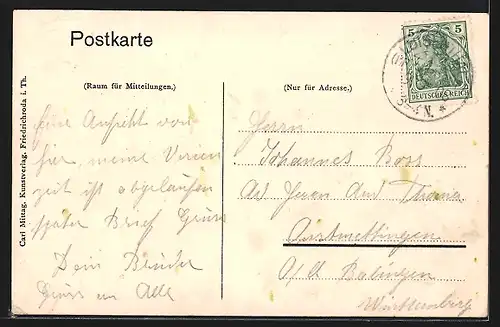 Postkarte
(Raum für Mitteilungen.)
(Nur für Adresse.)
5 5
DEUTSCHES REICH
Carl Mittag, Kunstverlag, Friedrichroda i. Th.
Eine Ansicht von
hier, meine
zeit ist abgelaufen
später Brief Gruss
Dein Bruder
Gruss an Alle
Herrn
Johannes Boss
Ad Herrn
Onstmettingen
O/A Balingen
Württemberg